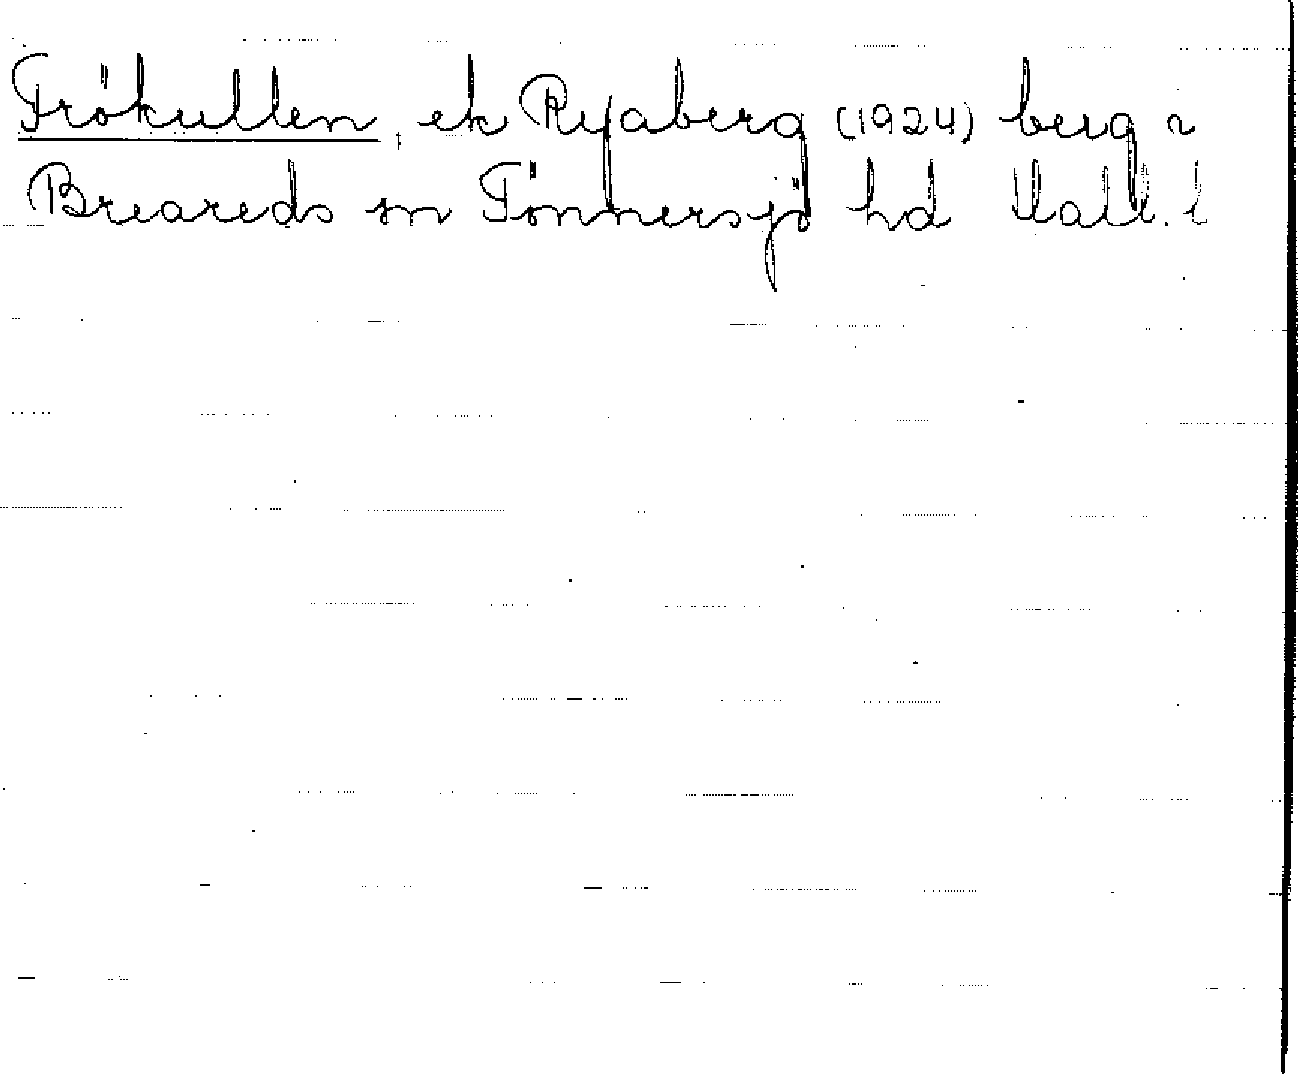 Trökullen, ek Ryaberg (1924) berg i
Breareds sn Tönnersjö hd Hall. l